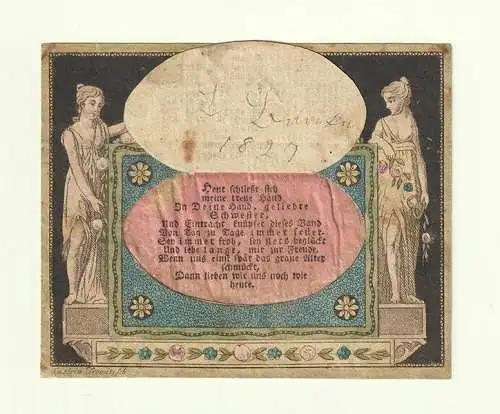 1827
Heut schließt sich
meine treue Hand
In Deine Hand, geliebte
Schwester,
Und Eintracht knüpfet dieses Band
Von Tag zu Tage immer fester.
Sey immer froh, sey stets beglückt
und lebe lange, mir zur Freude.
Wenn uns einst spät das graue Alter
schmückt,
Dann lieben wir uns noch wie
heute.